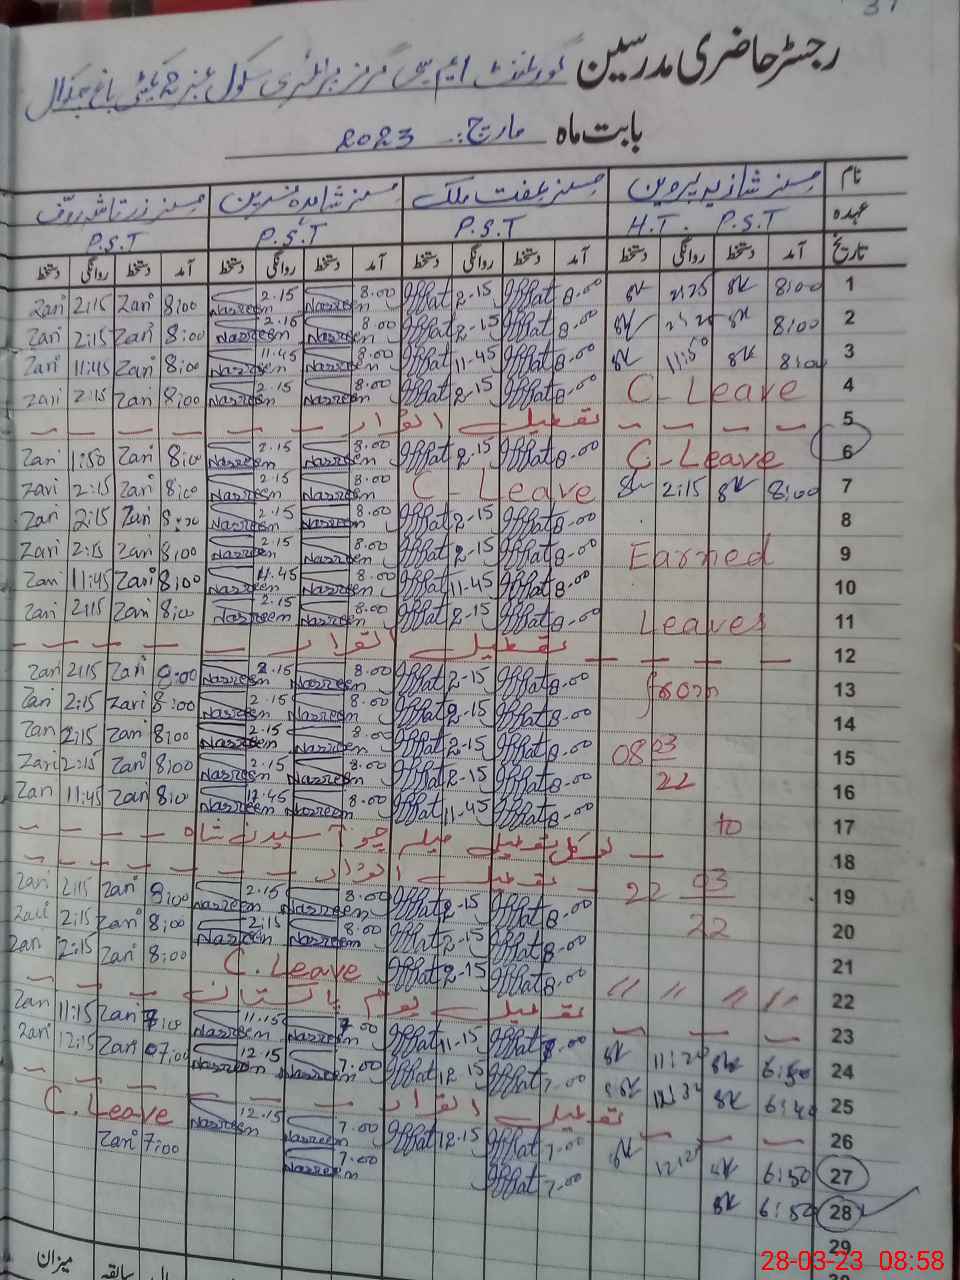 رجسٹر حاضری مدرسین گورنمنٹ ایم سی گرلز پرائمری سکول نمبر
بابت ماہ مارچ 2023
نام مسز شازیہ پروین مسز عفت ملک مسز شاہدہ نسرین
عہدہ H.T. P.S.T P.S.T P.S.T P.S.T
تاریخ آمد دستخط روانگی دستخط آمد دستخط روانگی دستخط آمد دستخط روانگی دستخط آمد دستخط روانگی دستخط
1 8:00 SK SK 8.00 Iffat 2-15 Iffat 8.00 Nasreen 2.15 Nasreen 8:00 Zari 2:15 Zari
2 8:00 SK SK 8.00 Iffat 2-15 Iffat 8.00 Nasreen 2.15 Nasreen 8:00 Zari 2:15 Zari
3 8:00 SK 11:50 SK 8.00 Iffat 11-45 Iffat 8.00 Nasreen 11.45 Nasreen 8:00 Zari 11:45 Zari
4 C-Leave 8.00 Iffat 2-15 Iffat 8.00 Nasreen 2.15 Nasreen 8:00 Zari 2:15 Zari
5 تعطیل اتوار
6 C-Leave 8.00 Iffat 2-15 Iffat 8.00 Nasreen 2.15 Nasreen 8:00 Zari 1:50 Zari
7 8:00 SK 2:15 SK C-Leave 8.00 Nasreen 2.15 Nasreen 8:00 Zari 2:15 Zari
8 8.00 Iffat 2-15 Iffat 8.00 Nasreen 2.15 Nasreen 8:00 Zari 2:15 Zari
9 Earned 8.00 Iffat 2-15 Iffat 8.00 Nasreen 2.15 Nasreen 8:00 Zari 2:15 Zari
10 8.00 Iffat 11-45 Iffat 8.00 Nasreen 11.45 Nasreen 8:00 Zari 11:45 Zari
11 Leaves 8.00 Iffat 2-15 Iffat 8.00 Nasreen 2.15 Nasreen 8:00 Zari 2:15 Zari
12 تعطیل اتوار
13 from 8.00 Iffat 2-15 Iffat 8.00 Nasreen 2.15 Nasreen 8:00 Zari 2:15 Zari
14 8.00 Iffat 2-15 Iffat 8.00 Nasreen 2.15 Nasreen 8:00 Zari 2:15 Zari
15 08 03 8.00 Iffat 2-15 Iffat 8.00 Nasreen 2.15 Nasreen 8:00 Zari 2:15 Zari
16 22 8.00 Iffat 2-15 Iffat 8.00 Nasreen 2.15 Nasreen 8:00 Zari 2:15 Zari
17 to 8.00 Iffat 11-45 Iffat 8.00 Nasreen Nasreen 8:00 Zari 11:45 Zari
18 لوکل تعطیل میلہ شاہ
19 22 03 تعطیل اتوار
20 22 8.00 Iffat 2-15 Iffat 8.00 Nasreen 2.15 Nasreen 8:00 Zari 2:15 Zari
21 8.00 Iffat 2-15 Iffat 8.00 Nasreen 2:15 Nasreen 8:00 Zari 2:15 Zari
22 // // // // 8.00 Iffat 2-15 Iffat C.Leave 8:00 Zari 2:15 Zari
23 تعطیل یوم پاکستان
24 6:50 SK SK Iffat 11-15 Iffat 7.00 Nasreen 11.15 Nasreen Zari 11:15 Zari
25 6:40 SK SK 7.00 Iffat 12.15 Iffat 7.00 Nasreen 12.15 Nasreen 7:00 Zari 12:15 Zari
26 تعطیل اتوار
27 6:50 SK SK 7.00 Iffat 12.15 Iffat 7.00 Nasreen 12.15 Nasreen C.Leave
28 6:50 SK 7.00 Iffat 7.00 Nasreen 7:00 Zari
29
میزان سابقہ
28-03-23 08:58